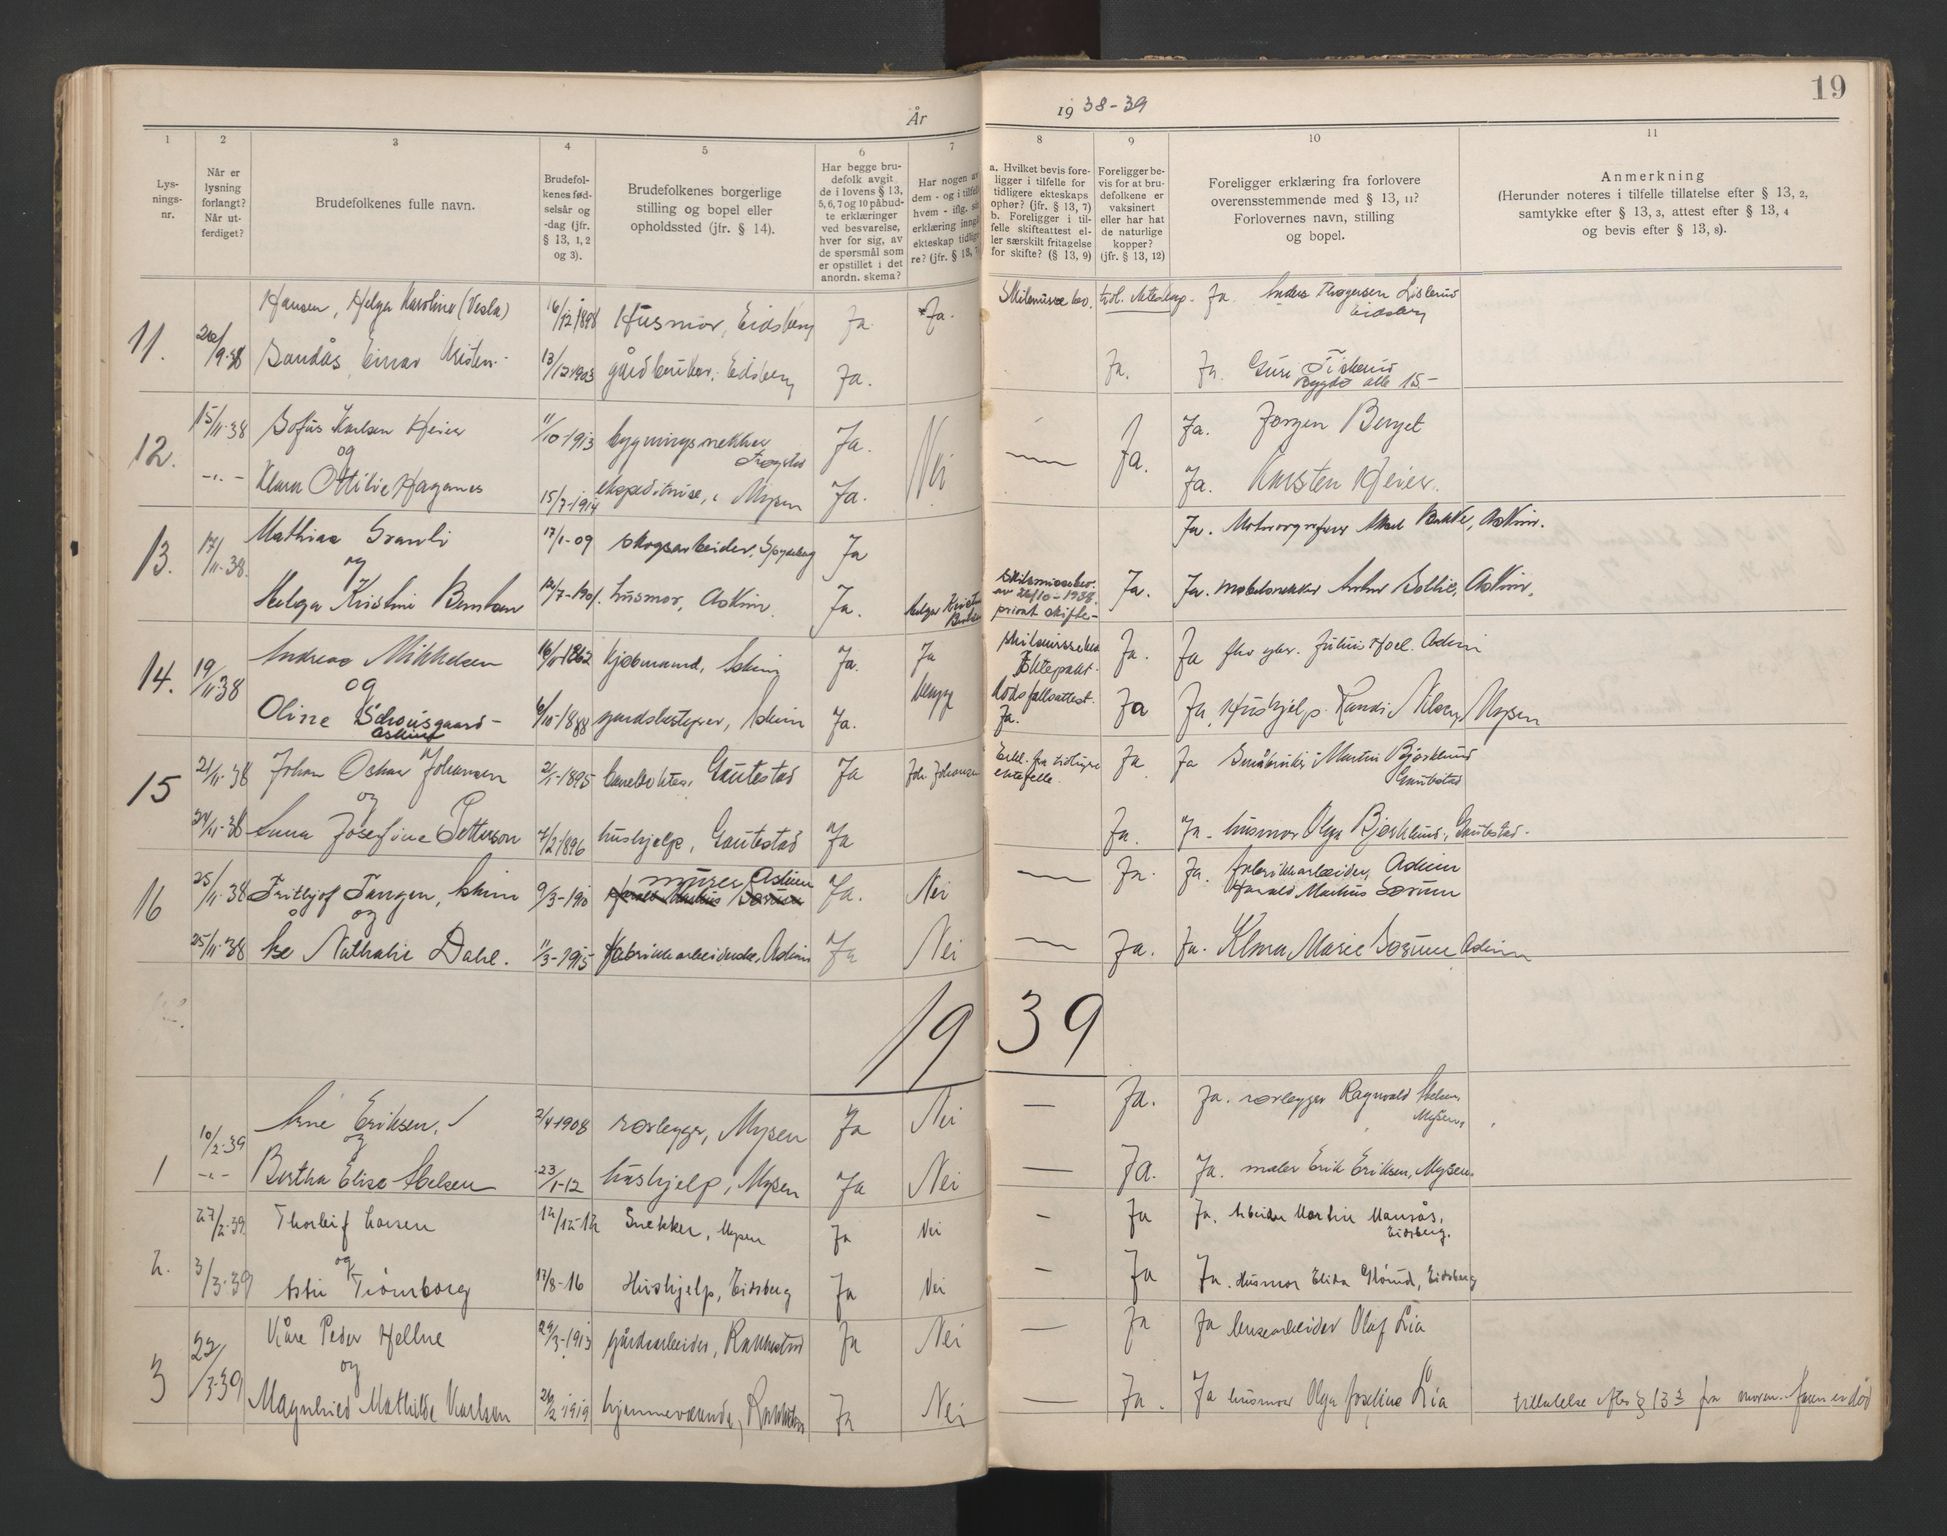 År 19 38-39
19
1 2 3 4 5 6 7 8 9 10 11
Lys-
nings-
nr.
Når er
lysning
forlangt?
Når ut-
ferdiget?
Brudefolkenes fulle navn.
Brudefol-
kenes fød-
selsår og
-dag (jfr.
§ 13, 1, 2
og 3).
Brudefolkenes borgerlige
stilling og bopel eller
opholdssted (jfr. § 14).
Har begge bru-
defolk avgit
de i lovens § 13,
5, 6, 7 og 10 påbud-
te erklæringer
ved besvarelse,
hver for sig, av
de spørsmål som
er opstillet i det
anordn. skema?
Har nogen av
dem - og i tilfelle
hvem - iflg. sin
erklæring inngått
ekteskap tidlige-
re? (jfr. § 13, 7)
a. Hvilket bevis fore-
ligger i tilfelle for
tidligere ekteskaps
ophør? (jfr. § 13, 7)
b. Foreligger i til-
felle skifteattest el-
ler særskilt fritagelse
for skifte? (§ 13, 9)
Foreligger be-
vis for at bru-
defolkene er
vaksinert
eller har hat
de naturlige
kopper?
(jfr. § 13, 12)
Foreligger erklæring fra forlovere
overensstemmende med § 13, 11?
Forlovernes navn, stilling
og bopel.
Anmerkning
(Herunder noteres i tilfelle tillatelse efter § 13, 2,
samtykke efter § 13, 3, attest efter § 13, 4
og bevis efter § 13, 8).
Hansen, Helga Karoline (Vesla) 16/12 1898 Husmor, Eidsberg Ja. Ja. Ja.
11. 20/9-38 Sandås, Einar Kristen 13/12 1903 gårdbruker, Eidsberg Ja. Ja. Ja.
Eidsberg
15/11-38 Sofus Karlsen Heier 11/10-1913 bygningsnekker Ja. Ja. Jørgen Berget
12. og Nei Ja.
-"- Klara Ottilie Haganes 15/7-1914 ekspeditrise, Mysen Ja. Ja. Karsten Heier.
Mathias Granli 17/1-09 skogsarbeider, Spydeberg Ja Ja. Askim.
13. 17/11-38. og
Helga Kristine Berntsen 12/7-1901. husmor, Askim. Ja. Helga Kristine Ja. Ja. møbelsnekker Askim,
privat skifte-
Andreas Mikkelsen 16/11-1862 kjøbmand, Askim Ja. Ja Ja. Ja Julius Hoel. Askim
14. 19/11-38 og begge Ektepakt.
Oline Schousgaard- 6/10-1888 gardsbestyrer, Askim Ja. Dødsfallsattest. Ja. Ja Ja, Hushjelp. Randi Mysen
Askim
15 21/11-38 Johan Oskar Johansen 2/1-1895 Gautestad Ja Joh. Johansen Erkl. fra tidligere ektefelle. Ja. Ja Småbruker Martin Bjørklund
og Gautestad
24/11-38 Anna Josefine Petterson 7/2 1896 hushjelp, Gautestad Ja Ja. Ja. husmor Olga Bjørklund, Gautestad.
16 25/11-38 Frithjof Tangen, Askim 9/3-190 murer Askim Ja. Nei — Ja. Ja. fabrikkarbeider, Askim
og Harald Markus Sørum
25/11-38 Åse Nathalie Dahl. 11/3-1915 fabrikkarbeiderske, Askim Ja Nei — Ja. Ja. Klara Marie Sørum Askim
1939
10/2-39 Arne Eriksen. 2/4-1908 rørlegger, Mysen Ja Nei — Ja. Ja. rørlegger Ragnvald Abelsen,
og Mysen.
1 -"- Bertha Elise Abelsen 23/1-12 hushjelp, Mysen Ja Nei — Ja. Ja. maler Erik Eriksen, Mysen.
27/2-39 Thorleif Larsen 12/12-12 Snekker, Mysen Ja Nei - Ja Ja. Arbeider Martin Mansås,
2. og Eidsberg.
3/3-39 Astri Trømborg 17/8-16 Hushjelp, Eidsberg Ja Nei - Ja Ja. Husmor Elida Eidsberg
Kåre Peder Hellne 29/3-1913 gårdsarbeider, Rakkestad Ja Nei — Ja Ja Olaf Lia
3 22/3-39 og
Magnhild Mathilde Karlsen 26/2-1919 hjemmeværende, Rakkestad Ja Nei — Ja. Ja husmor Olga Josefine Lia tillatelse efter § 13 3 fra moren. Faren er død